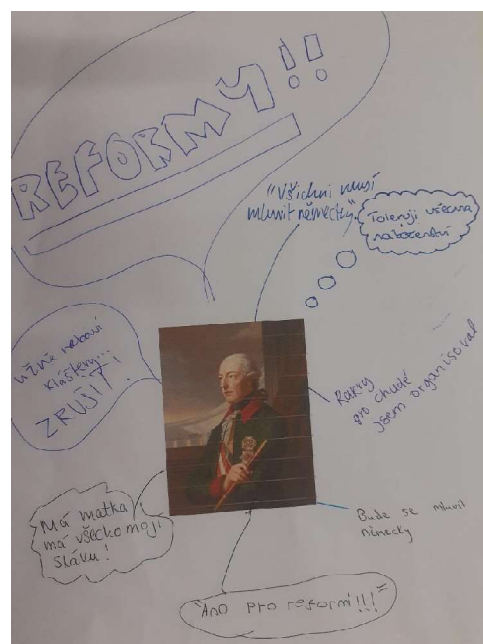 REFORMY!!
"Všichni musí
mluvit německy".
Toleruji všechna
náboženství
nebaví
kláštery...
ZRUŠIT!
Rakvy
pro chudé
jsem organisoval
Má matka
má všecko moji
slávu!
Bude se mluvit
německy
"ANO pro reformí!!!"